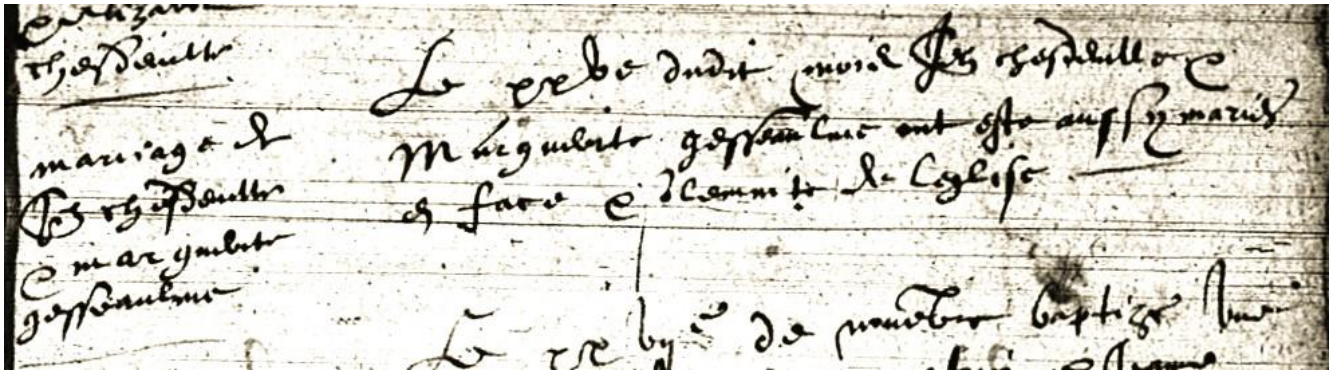 chesdeville
mariage de
Jeh chesdeville
& marguerite
gesseaulme
Le xxve dudit mois Jeh chesdeville &
Marguerite gesseaulme ont este aussy mariés
en face & solemnite de leglise
Le xxvije de novebre baptize une